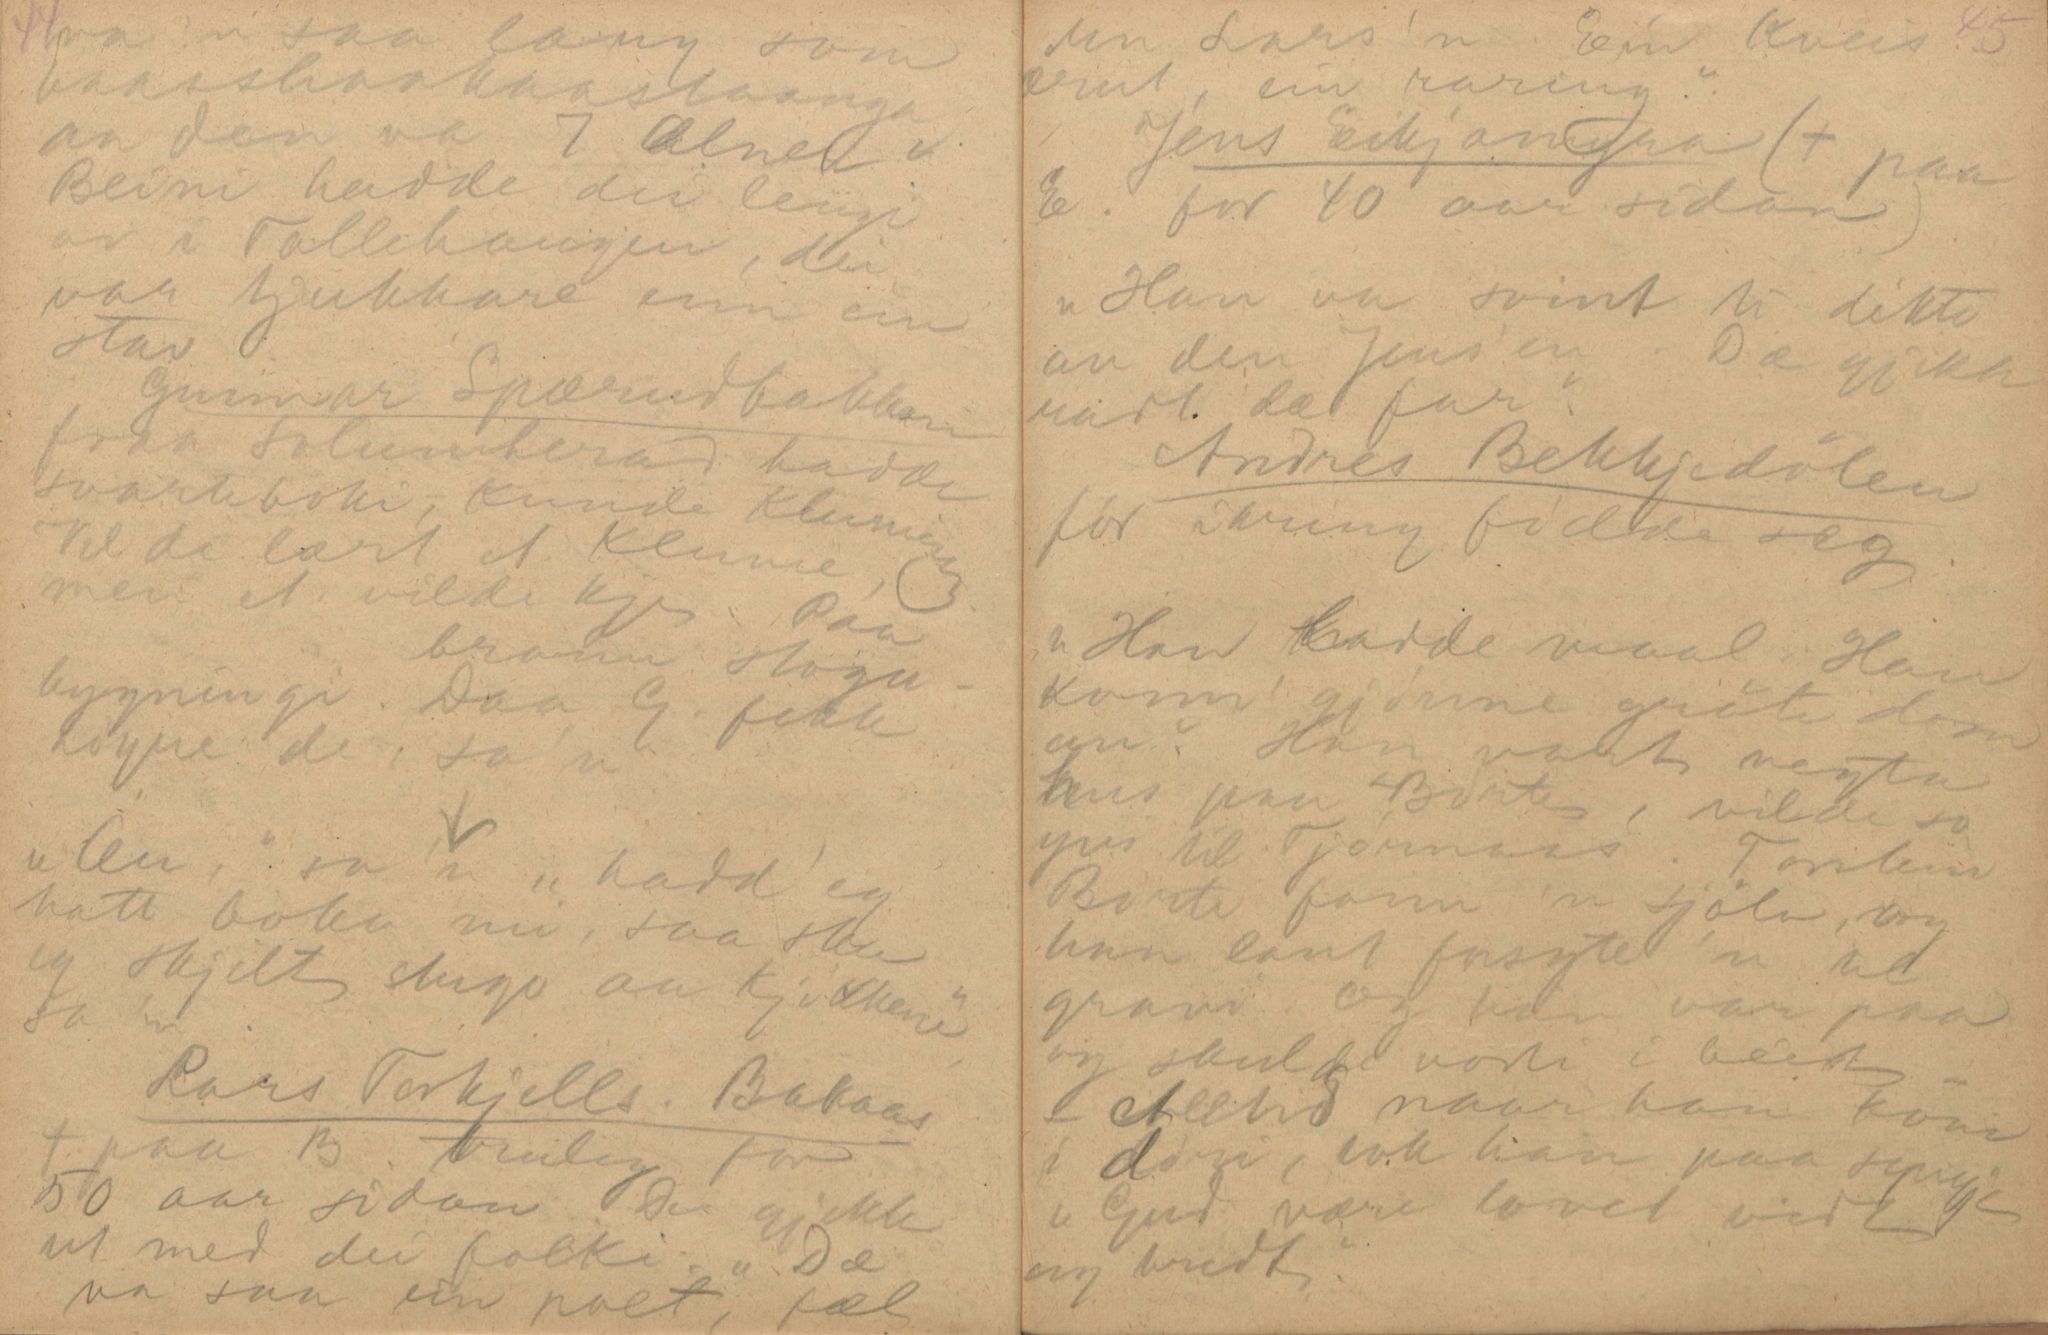 44
va 'n saa lang som
baashaakaastaanga
aa den va 7 alner"
Beini hadde dei lengi
av i Tallehaugen, dei
var tjukkare enn ein
stav
Gunnar Spærudbakken
fraa Solumherad hadde
svarteboki, kunde klunin
Vilde lært et klunie,
men et vilde kje. Paa
brann stogu-
bygningi. Daa G. fekk
høyre de, sa 'n
"Au," sa 'n "hadd' eg
hatt boka mi, saa sku
eg skjilt stugo aa kjökken"
sa 'n
Lars Torkjells. Bakaas
† paa B. truleg for
50 aar sidan De gjekk
ut med dei folki. "Dæ
va saa ein poet, fæl
45
den Lars'n. Ein kveis
ein raring".
Jens Eikjarmyra († paa
E. for 40 aar sidan)
"Han va svint ti dikte
au den Jens'en. Dæ gjekk
radt dæ for"
Andres Bekkjedölen
for ikring födde seg
"Han hadde maal. Han
konn' gjönne gröte dom
au". Han vart negta
hus paa Börte, vilde so
yve til Tjönnaas. Torstein
Börte fann 'n sjölv, og
han lant fysyte 'n ad
gravi. Og han var paa
og skulde
- Alltid naar han kom
i döri, tok han paa syngje
"Gud være lovet vidt
og bredt".